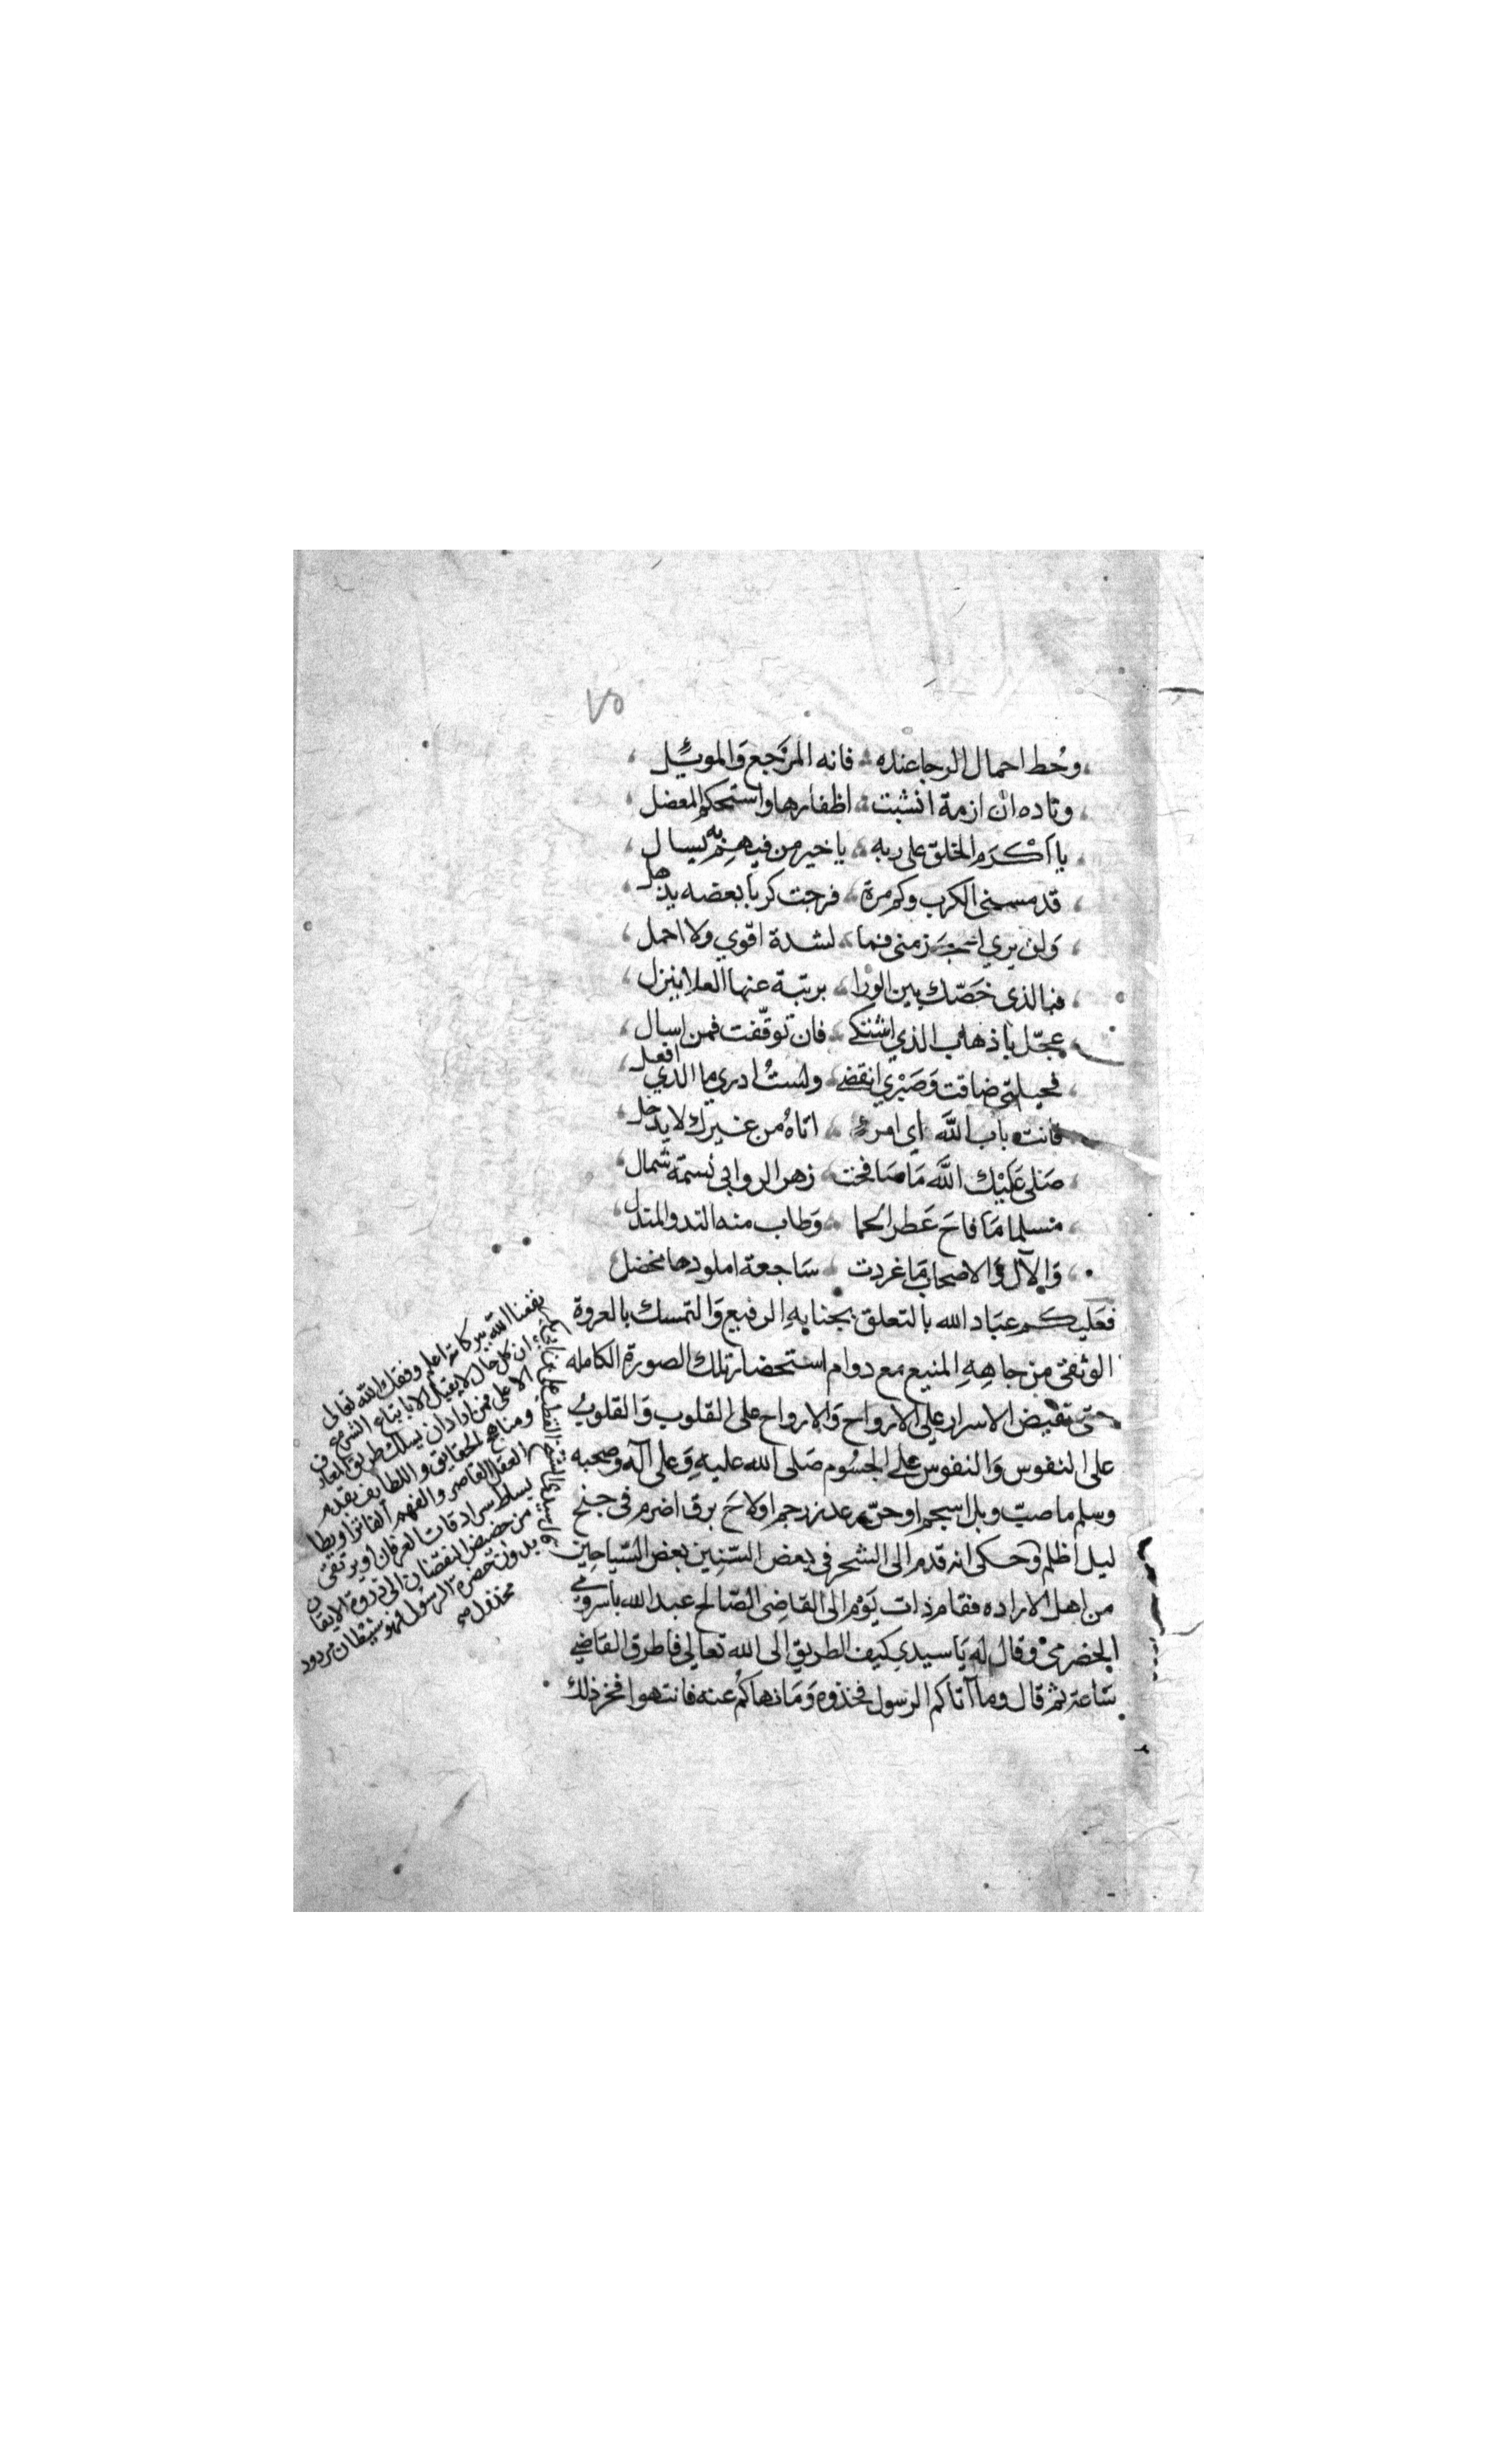 ٧٥
وحُط احمال الرجا عنده فانه المرجع وَالموئِل
وناده ان ازمة انشبت اظفارها واستحكم المعضل
يا اَكْرَم الخلق على ربه يا خير من فيهم به يسال
قد مسنى الكرب وكم مرة فرجت كربا بعضه يذهل
وَلن يري اعجَز منى فما لشدة اقوي ولا احمل
فبالذى خَصّك بين الورا برتبة عنها العلا ينزل
عجّل باذهاب الذي اشتكي فان توقّفت فمن اسال
فحيلتى ضاقت وَصَبْري انقضي ولستُ ادري ما الذي افعل
فانت باب اللَّه اي امرئ اتاهُ من غيرك لا يدخل
صَلى عَلَيْك اللَّه مَا صَافحت زهر الروابي نسمة شمال
مسلما مَا فاحَ عَطر الحما وَطاب منه الند والمندل
وَالآل وَالاصحاب مَا غردت سَاجعة املودها مخضل
فعَليكم عبَاد الله بالتعلق بجنابهِ الرفيع وَالتمسك بالعروة
الوثقى من جاهِهِ المنيع مع دوام استحضار تلك الصورة الكامله
حتى تفيض الاسرار علي الارواح وَالارواح على القلوب وَالقلوبُ
على النفوس وَالنفوس علي الجسُوم صَلى الله عليهِ وَعلى آله وصحبه
وسلم ما صبّ وبل اسجم او حنّ رعد زرجم اولاحَ برق اضرم فى جنح
ليل اظلم وحكى انه قدم الى الشحر فى بعض السّنِين بعض السّيَاحِين
من اهل الاراده فقام ذات يَوْم الى القاضِى الصّالح عبد الله باسرومي
الحضرميْ وقال له يَا سيدي كيف الطريق الى الله تعالي فاطرق القاضي
سَاعة ثم قال وما آتاكم الرسول فخذوه وَمَا نهاكُم عنه فانتهوا فخر ذلك
نفعنا الله ببركاته اعلم وفقك الله تعالى
ان كل حال لا يقبل الا باتباع الشرع
الاعلى فمن اراد ان يسلك طريق المعارف
ومناهج الحقايق واللطايف بقدم
العقل القاصر والفهم الفاتر او يطا
بساط سرادقات العرفان او يرتقى
من حضيض النقصان الى ذروة الايقان
بدون حضرة الرسول فهو شيطان مردود
مخذول